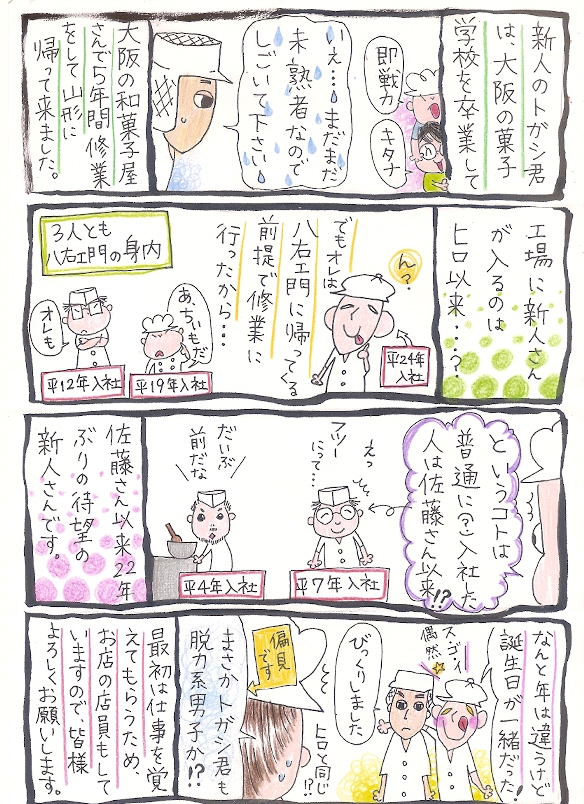 新人のトガシ君
は、大阪の菓子
学校を卒業して
即戦力
キタナ
いえ…まだまだ
未熟者なので
しごいて下さい
大阪の和菓子屋
さんで5年間修業
をして山形に
帰って来ました。
工場に新人さん
が入るのは
ヒロ以来…?
ん?
平24年
入社
でもオレは
八右エ門に帰ってくる
前提で修業に
行ったから…
あ、ちぃもだ
平19年入社
オレも
平12年入社
3人とも
八右エ門の身内
というコトは
普通に(?)入社した
人は佐藤さん以来!?
えっ
フツーにって…
平7年入社
だいぶ
前だな
平4年入社
佐藤さん以来22年
ぶりの待望の
新人さんです。
なんと年は違うけど
誕生日が一緒だった!
スゴイ
偶然
びっくりしました
ヒロと同じ!?
偏見
です
まさかトガシ君も
脱力系男子か!?
最初は仕事を覚
えてもらうため、
お店の店員もして
いますので、皆様
よろしくお願いします。